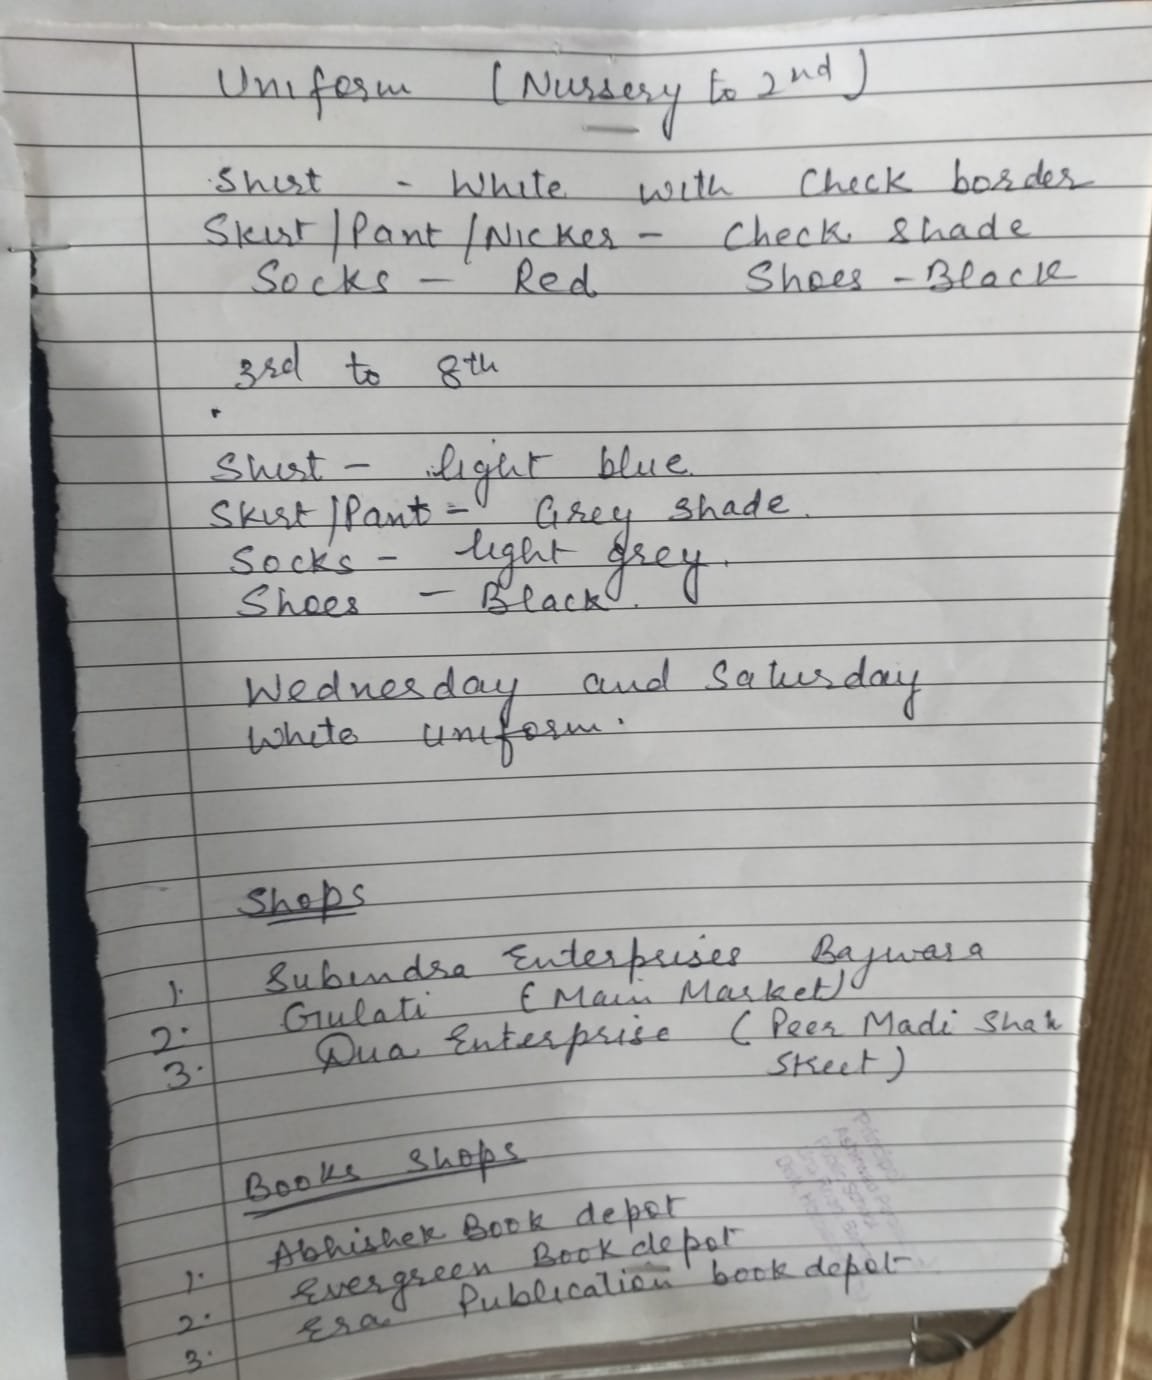 Uniform (Nursery to 2nd)
Shirt - White with Check border
Skirt/Pant/Nicker - Check shade
Socks - Red Shoes - Black
3rd to 8th
Shirt - light blue
Skirt/Pant - Grey shade.
Socks - light grey.
Shoes - Black.
Wednesday and Saturday
White uniform.
Shops
1. Subendra Enterprises Bajwara
2. Gulati (Main Market)
3. Dua Enterprise (Peer Madi Shah
Street)
Books Shops
1. Abhishek Book depot
2. Evergreen Book depot
3. Era Publication book depot